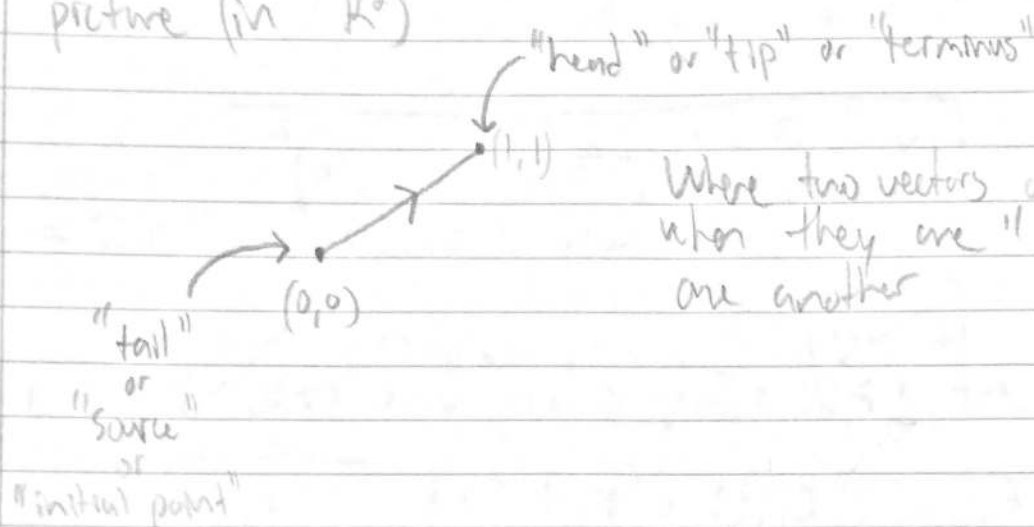 picture (in R²)
"head" or "tip" or "terminus"
(1, 1)
Where two vectors
when they are "
one another
(0,0)
"tail"
or
"source"
or
"initial point"